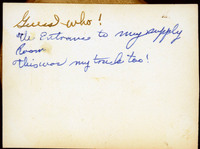 Guess who!
The Entrance to my supply
Room
this was my truck too!